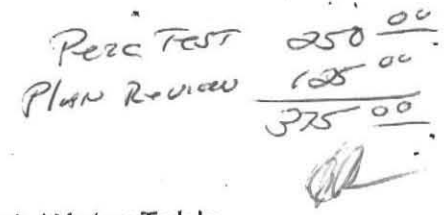 Perc Test 250 00
Plan Review 125 00
375 00